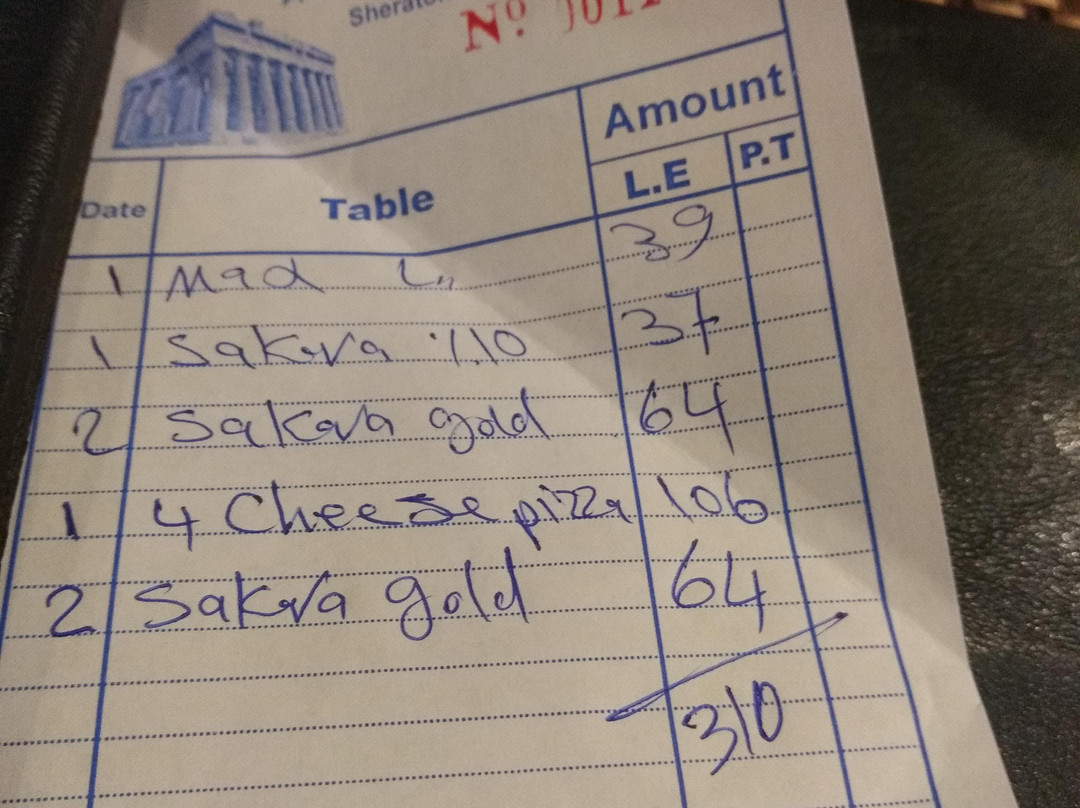 Nº
Amount
L.E P.T
Date Table
1 Mad 39
1 Sakara %10 37
2 Sakara gold 64
1 4 Cheese pizza 106
2 Sakara gold 64
310